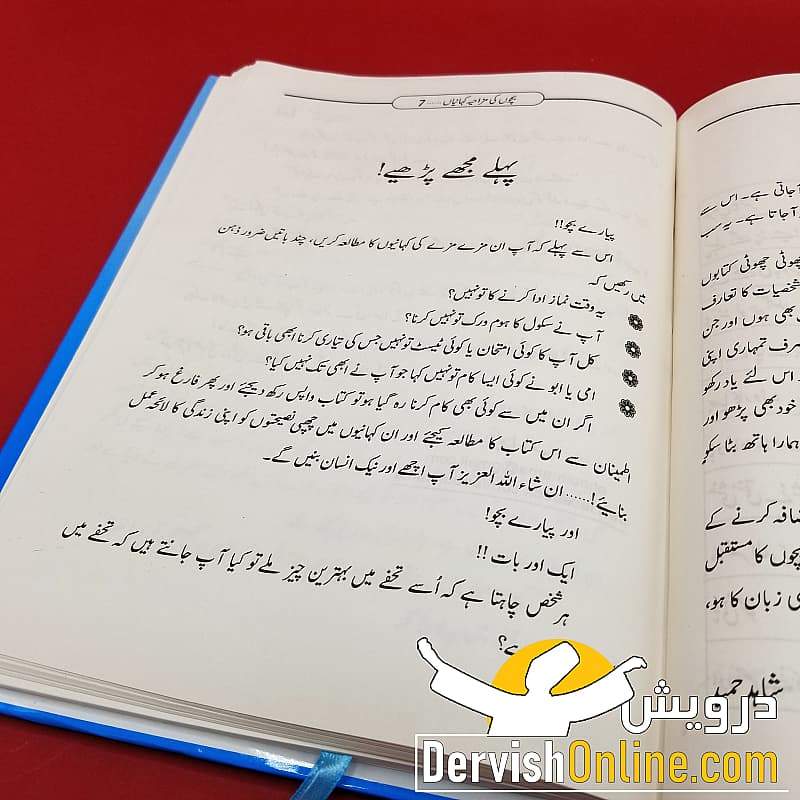 بچوں کی مزاحیہ کہانیاں ..... 7
پہلے مجھے پڑھیے!
پیارے بچو!!
اس سے پہلے کہ آپ ان مزے مزے کی کہانیوں کا مطالعہ کریں، چند باتیں ضرور ذہن
میں رکھیں کہ
یہ وقت نماز ادا کرنے کا تو نہیں؟
آپ نے سکول کا ہوم ورک تو نہیں کرنا؟
کل آپ کا کوئی امتحان یا کوئی ٹیسٹ تو نہیں جس کی تیاری کرنا ابھی باقی ہو؟
امی یا ابو نے کوئی ایسا کام تو نہیں کہا جو آپ نے ابھی تک نہیں کیا؟
اگر ان میں سے کوئی بھی کام کرنا رہ گیا ہو تو کتاب واپس رکھ دیجئے اور پھر فارغ ہو کر
اطمینان سے اس کتاب کا مطالعہ کیجئے اور ان کہانیوں میں چھپی نصیحتوں کو اپنی زندگی کا لائحہ عمل
بنائیے!...... ان شاء اللہ العزیز آپ اچھے اور نیک انسان بنیں گے۔
اور پیارے بچو!
ایک اور بات !!
ہر شخص چاہتا ہے کہ اُسے تحفے میں بہترین چیز ملے تو کیا آپ جانتے ہیں کہ تحفے میں
ے؟
آ جاتی ہے۔ اس سے
آ جاتا ہے۔ یہ سب
چھوٹی چھوٹی کتابوں
شخصیات کا تعارف
بھی ہوں اور جن
صرف تمہاری اپنی
اس لئے یاد رکھو
خود بھی پڑھو اور
ہمارا ہاتھ بٹا سکو
اضافہ کرنے کے
بچوں کا مستقبل
ی زبان کا ہو،
شاہد حمید
درویش
DervishOnline.com